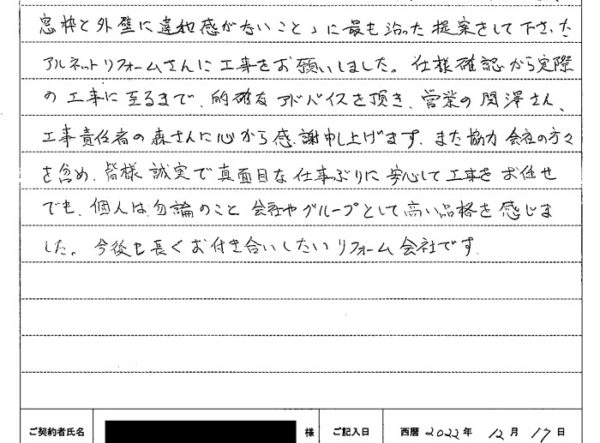 窓枠と外壁に違和感がないこと」に最も沿った提案をして下さった
アルネットリフォームさんに工事をお願いしました。仕様確認から実際
の工事に至るまで、的確なアドバイスを頂き、営業の関澤さん、
工事責任者の森さんに心から感謝申し上げます。また協力会社の方々
を含め、皆様誠実で真面目な仕事ぶりに安心して工事をお任せ
でき、個人は勿論のこと会社やグループとして高い品格を感じま
した。今後も長くお付き合いしたいリフォーム会社です。
ご契約者氏名 様 ご記入日 西暦 2022年 12月 17日